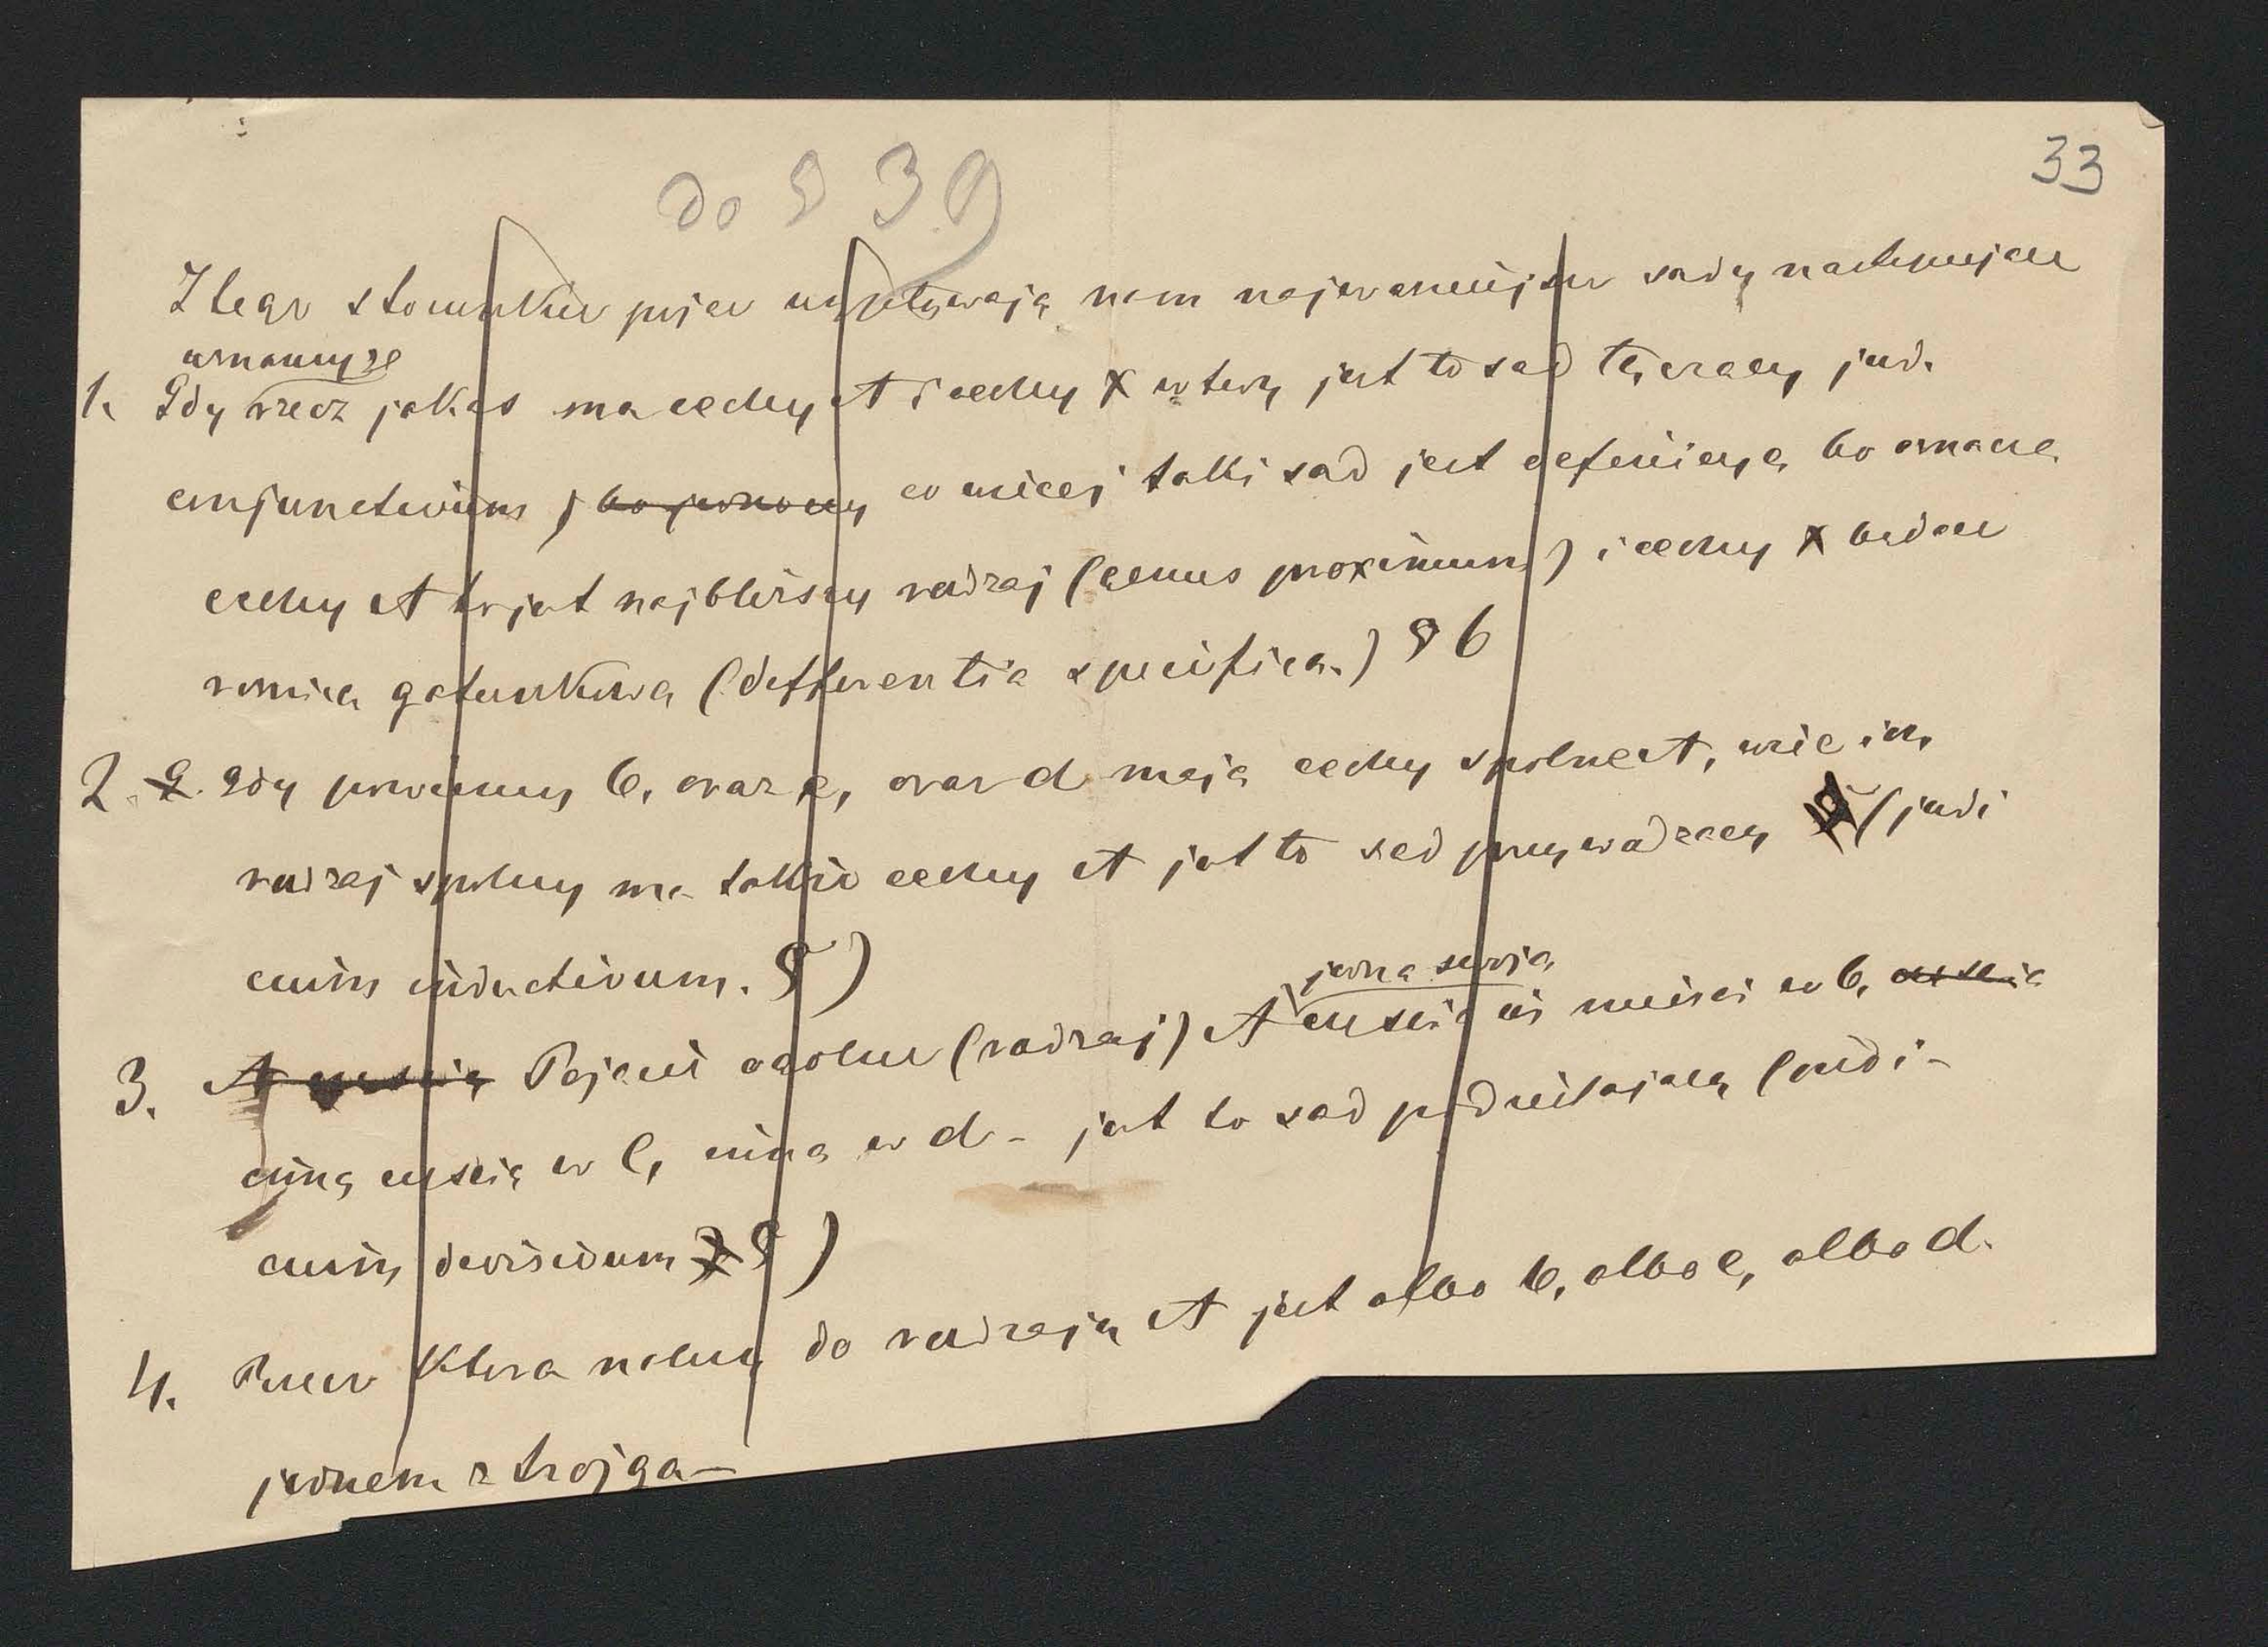 33
do § 39
Z tego stosunku pojęć wypływają nam najważniejsze sądy następujące
uznamy że
1. Gdy rzecz jakaś ma cechy A i cechy x wtedy jest to sąd łączący jud.
conjunctivum, co więcej taki sąd jest definicyą bo oznacza
cechy A to jest najbliższy rodzaj (genus proximum) i cechy x będące
różnicą gatunkową (differentia specifica.) § 6
2. Gdy powiemy b, oraz c, oraz d mają cechy spólne A, więc ich
rodzaj spólny ma także cechy A jest to sąd przywodzący (judi
cium inductivum. §)
jedną swoją
3. Pojęcie ogólne (rodzaj) A częścią mieści w b,
inną częścią w c, inną w d - jest to sąd podzielający (judi-
cium divisivum §)
4. Rzecz która należy do rodzaju A jest albo b, albo c, albo d.
jednem z trojga-